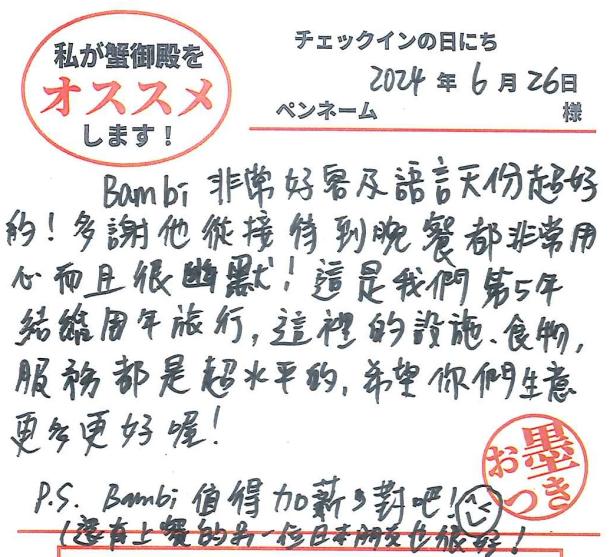 私が蟹御殿を
オススメ
します!
チェックインの日にち
2024年6月26日
ペンネーム 様
Bambi 非常好客及語言天份超好
的!多謝他從接待到晚餐都非常用
心而且很幽默!這是我們第5年
結婚周年旅行,這裡的設施、食物,
服務都是超水平的,希望你們生意
更多更好喔!
お墨
つき
P.S. Bambi 值得加薪 對吧!
(還有上餐的另一位日本朋友也很好!